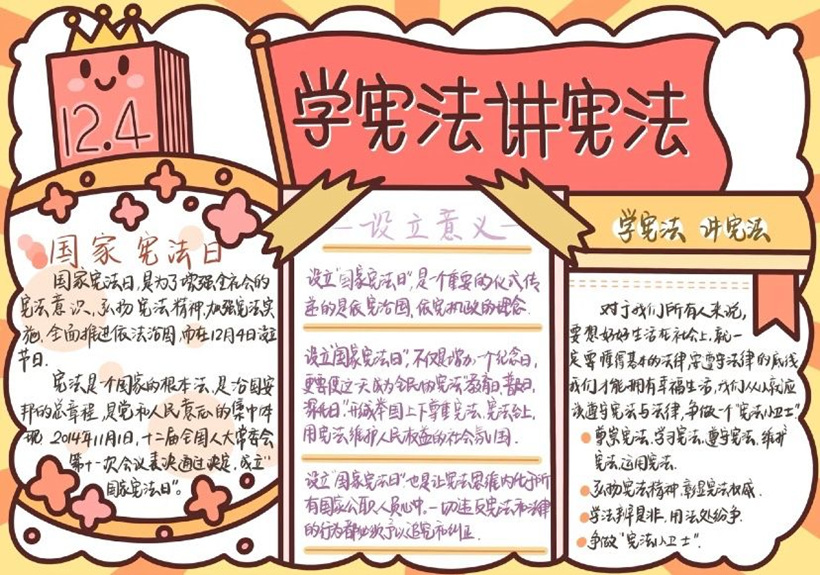 12.4
学宪法讲宪法
国家宪法日
国家宪法日,是为了增强全社会的
宪法意识、弘扬宪法精神,加强宪法实
施、全面推进依法治国,而在12月4日设立
节日.
宪法是个国家的根本法,是治国安
邦的总章程,是党和人民意志的集中体
现 2014年11月1日,十二届全国人大常委会
第十一次会议表决通过决定,成立"
国家宪法日"。
设立意义
设立"国家宪法日",是一个重要的仪式传
递的是依宪治国,依宪执政的理念.
设立"国家宪法日",不仅是增加一个纪念日,
更要使这一天成为全民的宪法"教育日、普及日、
深化日".形成举国上下尊重宪法、宪法至上、
用宪法维护人民权益的社会氛围.
设立"国家宪法日"也是让宪法思维内化于所
有国家公职人员心中.一切违反宪法和法律
的行为都必须予以追究和纠正
学宪法 讲宪法
对于我们所有人来说,
要想好好生活在社会上,就一
定要懂得基本的法律,要遵守法律的底线
我们才能拥有幸福生活,我们从小就应
该遵守宪法与法律,争做一个"宪法小卫士"
尊崇宪法、学习宪法、遵守宪法、维护
宪法、运用宪法.
弘扬宪法精神,彰显宪法权威.
学法辨是非,用法处纷争.
争做"宪法小卫士".